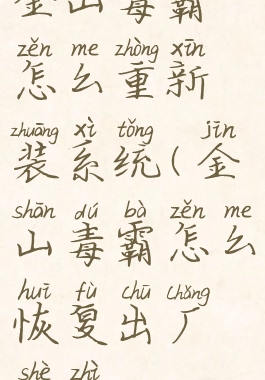 金山毒霸
zěn me zhòng xīn
怎么重新
zhuāng xì tǒng jīn
装系统(金
shān dú bà zěn me
山毒霸怎么
huī fù chū chǎng
恢复出厂
shè zhì